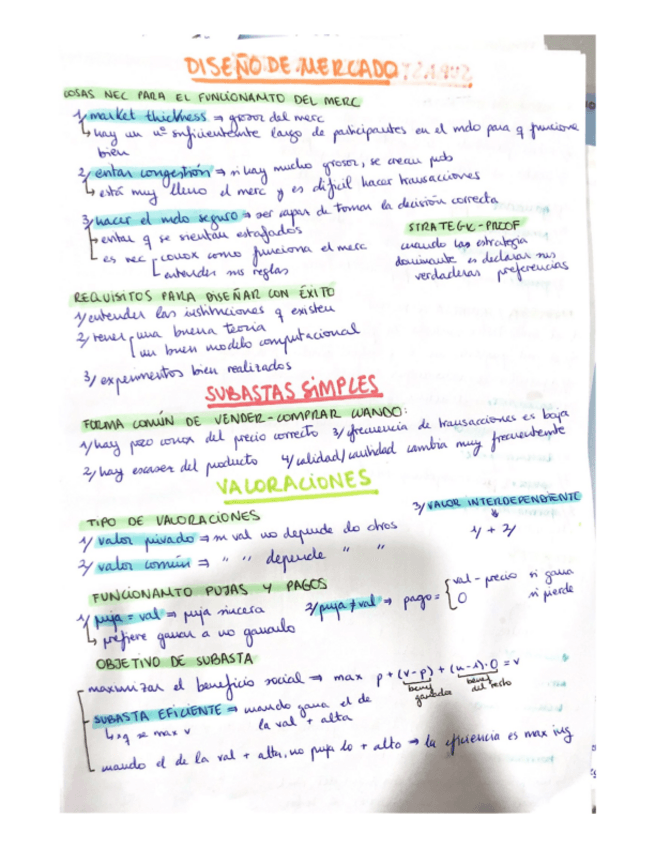 DISEÑO DE MERCADO
COSAS NEC PARA EL FUNCIONAMTO DEL MERC
1/ market thickness ⇒ grosor del merc
↳ hay un nº suficientemente largo de participantes en el mdo para q funcione
bien
2/ evitar congestión ⇒ si hay mucho grosor, se crean pub
↳ está muy lleno el merc y es difícil hacer transacciones
3/ hacer el mdo seguro ⇒ ser capaz de tomar la decisión correcta
↳ evitar q se sientan estafados
↳ es nec conox como funciona el merc
entender sus reglas
STRATEGIC-PROOF
cuando las estrategia
dominante es declarar sus
verdaderas preferencias
REQUISITOS PARA DISEÑAR CON ÉXITO
1/ entender las instituciones q existen
2/ tener una buena teoria
un buen modelo computacional
3/ experimentos bien realizados
SUBASTAS SIMPLES
FORMA COMÚN DE VENDER-COMPRAR CUANDO:
1/ hay poco conox del precio correcto 3/ frecuencia de transacciones es baja
2/ hay escasez del producto 4/ calidad/cantidad cambia muy frecuentemente
VALORACIONES
TIPO DE VALORACIONES
1/ valor privado ⇒ m val no depende de otros
2/ valor común ⇒ " " depende " "
3/ VALOR INTERDEPENDIENTE
1/ + 2/
FUNCIONAMTO PUJAS Y PAGOS
1/ puja = val ⇒ puja sincera
↳ prefiere ganar a no ganarlo
2/ puja ≠ val ⇒ pago = { val - precio si gana
0 si pierde
OBJETIVO DE SUBASTA
maximizar el beneficio social ⇒ max p + (v-p) + (n-1)·0 = v
benef ganador
benef del resto
SUBASTA EFICIENTE ⇒ cuando gana el de
la val + alta
↳ xq se max v
cuando el de la val + alta, no puja lo + alto ⇒ la eficiencia es max ing